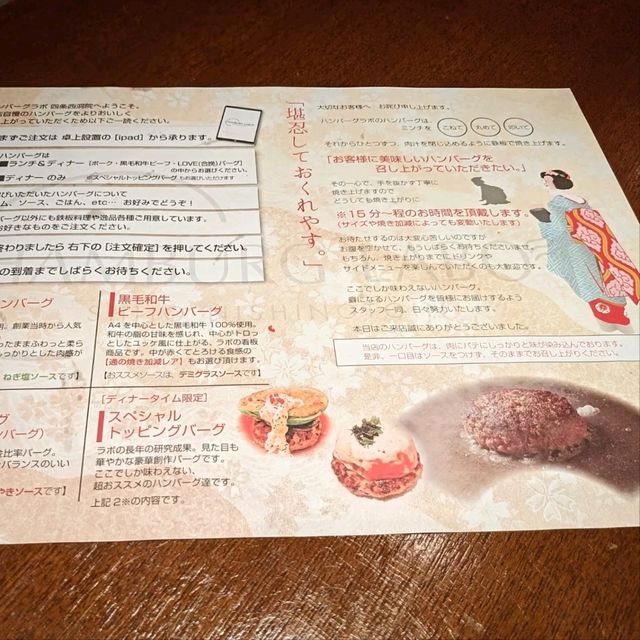 ハンバーグラボ 四条西洞院へようこそ。
自慢のハンバーグをよりおいしく
上がっていただくため以下ご一読ください。
まずご注文は 卓上設置の【ipad】から承ります。
ハンバーグは
ランチ&ディナー【ポーク・黒毛和牛ビーフ・LOVE(合挽)バーグ】
の中からお選びください。
ディナーのみ ※スペシャルトッピングバーグもお選びいただけます
びいただいたハンバーグについて
ム、ソース、ごはん、etc… お好みでどうぞ！
バーグ以外にも鉄板料理や逸品各種ご用意しています。
お好きなものをご注文ください。
終わりましたら 右下の【注文確定】を押してください。
の到着までしばらくお待ちください。
ハンバーグ
創業当時から人気
ったままふわっと柔ら
しっかりとした肉感が
ねぎ塩ソースです】
黒毛和牛
ビーフハンバーグ
A4を中心とした黒毛和牛 100%使用。
和牛の脂の甘味を感じれ、中心がトロっ
としたユッケ風に仕上がる、ラボの看板
商品です。中が赤くてとろける食感の
【通の焼き加減レア】もお選び頂けます。
【おススメソースは、デミグラスソースです】
ハンバーグ)
合比率バーグ。
バランスのいい
やきソースです】
【ディナータイム限定】
スペシャル
トッピングバーグ
ラボの長年の研究成果。見た目も
華やかな豪華創作バーグです。
ここでしか味わえない、
超おススメのハンバーグ達です。
上記2※の内容です。
「堪忍しておくれやす。」
大切なお客様へ お詫び申し上げます。
ハンバーグラボのハンバーグは、
ミンチを こねて 丸めて 叩いて
それからひとつずつ、肉汁を閉じ込めるように鉄板で焼き上げます。
「お客様に美味しいハンバーグを
召し上がっていただきたい。」
その一心で、手を抜かず丁寧に
焼き上げますので
どうしても焼き上がりに
※15分〜程のお時間を頂戴します。
(サイズや焼き加減によっても変動いたします)
お待たせするのは大変心苦しいのですが
お腹を空かせて、もうしばらくお待ちくださいませ。
もちろん、焼き上がりまでにドリンクや
サイドメニューを楽しんでいただくのも大歓迎です。
ここでしか味わえないハンバーグ。
癖になるハンバーグを皆様にお届けするよう
スタッフ一同、日々努力いたします。
本日はご来店誠にありがとうございました。
当店のハンバーグは、肉にパテにしっかりと味が染み込んでおります。
是非、一口目はソースをつけず、そのままでお召し上がりください。